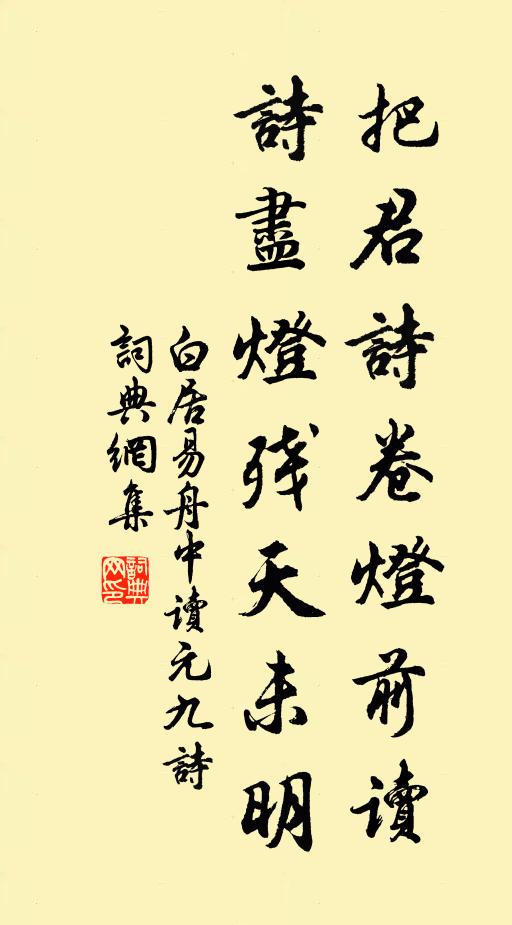 把君詩卷燈前讀
詩盡燈残天未明
白居易舟中讀元九詩
詞典網集
詞典网印